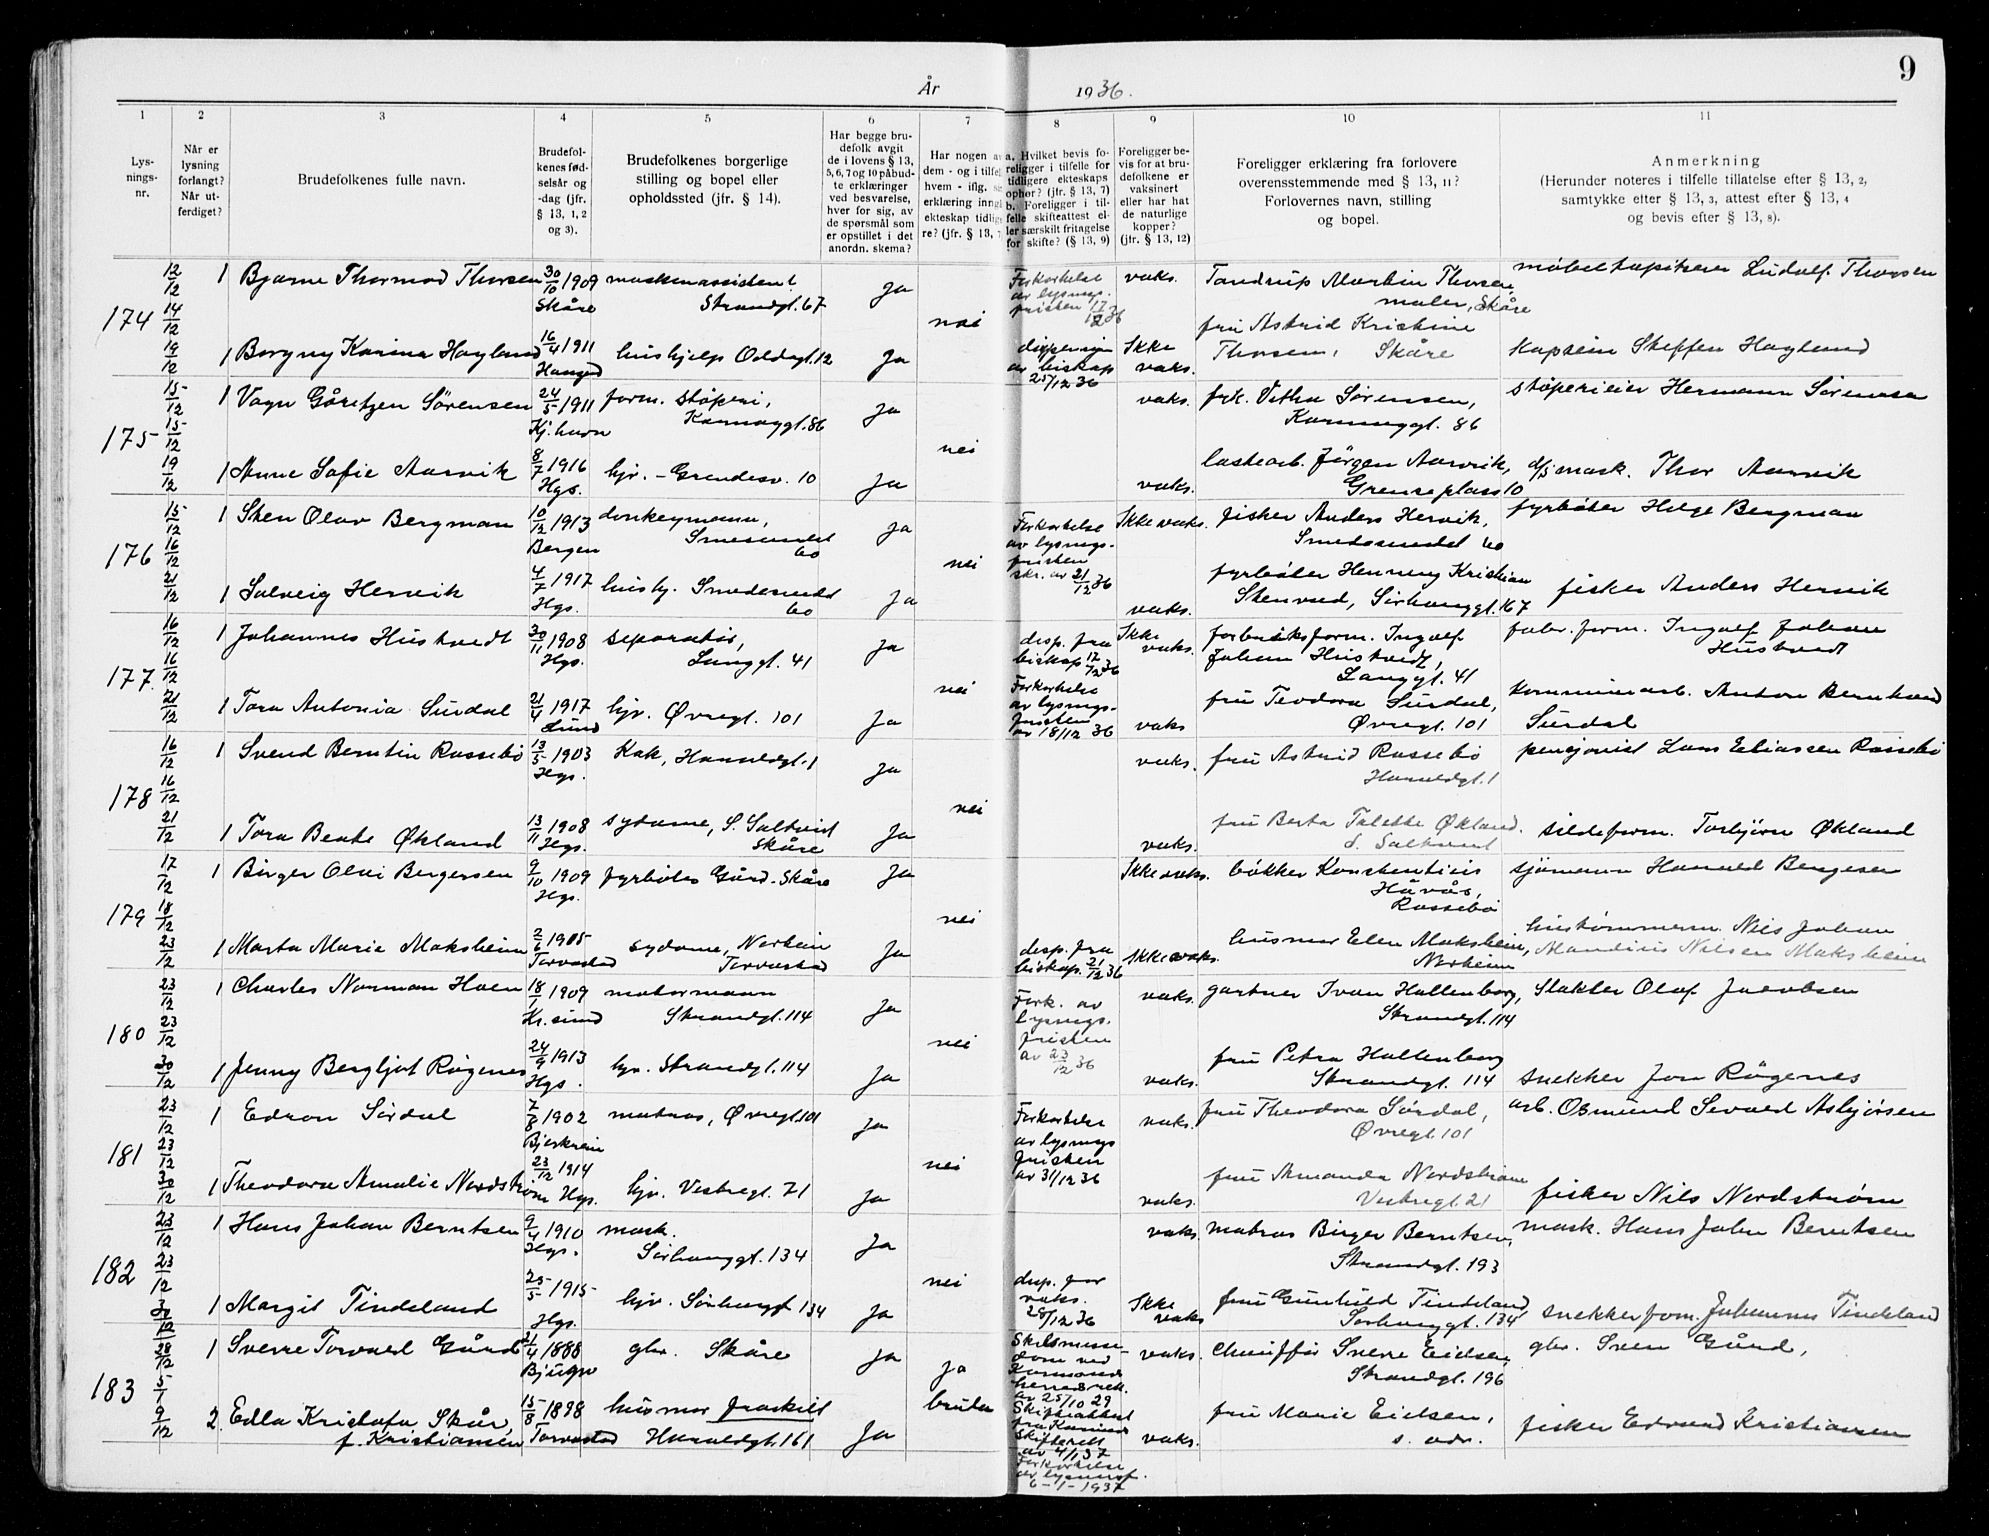 9
År 1936.
1 2 3 4 5 6 7 8 9 10 11
Lysningsnr.
Når er lysning forlangt? Når utferdiget?
Brudefolkenes fulle navn.
Brudefolkenes fødselsår og -dag (jfr. § 13, 1, 2 og 3).
Brudefolkenes borgerlige stilling og bopel eller opholdssted (jfr. § 14).
Har begge brudefolk avgit de i lovens § 13, 5, 6, 7 og 10 påbudte erklæringer ved besvarelse, hver for sig, av de spørsmål som er opstillet i det anordn. skema?
Har nogen av dem - og i tilfel hvem - iflg. se erklæring inngå ekteskap tidlige re? (jfr. § 13, 7
a. Hvilket bevis foreligger i tilfelle for tidligere ekteskaps ophør? (jfr. § 13, 7) b. Foreligger i tilfelle skifteattest eller særskilt fritagelse for skifte? (§ 13, 9)
Foreligger bevis for at brudefolkene er vaksinert eller har hat de naturlige kopper? (jfr. § 13, 12)
Foreligger erklæring fra forlovere overensstemmende med § 13, 11? Forlovernes navn, stilling og bopel.
Anmerkning (Herunder noteres i tilfelle tillatelse efter § 13, 2, samtykke efter § 13, 3, attest efter § 13, 4 og bevis efter § 13, 8).
174 12/12 14/12 19/12
1 Bjarne Thormod Thorsen 30/10 1909 Skåre maskinassistent Strandgt. 67 Ja nei Forkortelse av lysningsfristen 17/12 36 vaks. Tandrup Martin Thorsen, maler, Skåre møbeltapitserer Ludolf Thorsen
1 Borgny Karina Hagland 16/4 1911 Haugesd hushjelp Oddagt. 12 Ja dispensasjon av biskop 25/12 36 Ikke vaks. fru Astrid Kristine Thorsen, Skåre Kaptein Steffen Hagland
175 15/12 15/12 19/12
1 Vagn Sörensen 24/5 1911 Kj.havn form. støperi, Karmøygt. 86 Ja nei vaks. frk. Sørensen, Karmøygt. 86 støperieier Hermann Sørensen
1 Anne Sofie Aarvik 8/7 1916 Hgs. hjv. - Grensev. 10 Ja vaks. lastearb. Jörgen Aarvik, Grenseplass 10 d/s mask. Thor Aarvik
176 15/12 16/12 21/12
1 Sten Olav Bergman 10/12 1913 Bergen donkeymann, Smesundet 60 Ja nei Forkortelse av lysningsfristen skr. av 21/12 36 Ikke vaks. fisker Anders Hervik, Smedasundet 60 fyrbøter Helge Bergman
1 Solveig Hervik 4/7 1917 Hgs. hushj. Smedesundet 60 Ja vaks. fyrbøter Henning Kristian Stensrud, Sørhauggt. 167 fisker Anders Hervik
177. 16/12 16/12 21/12
1 Johannes Hustvedt 30/11 1908 Hgs. separatør, Langgt. 41 Ja nei disp. fra biskop 17/12 36 Ikke vaks. fabrikksform. Ingolf Johan Hustvedt, Langgt. 41 fabr. form. Ingolf Johan Hustvedt
1 Tora Antonia Surdal 21/4 1917 Lund hjv. Øvregt. 101 Ja Forkortelse av lysningsfristen av 18/12 36 vaks fru Teodora Surdal, Øvregt. 101 kommunearb. Anton Bernhard Surdal
178 16/12 16/12 21/12
1 Svend Berntin Rossebø 13/5 1903 Hgs. Kok, Haraldgt. 1 Ja nei vaks. fru Astrid Rossebø Haraldgt. 1 pensjonist Lars Eliassen Rossebø
1 Tora Beate Økland 13/11 1908 Hgs. sydame, S. Saltveit Skåre Ja vaks. fru Berta Talette Økland. S. Saltveit sildeform. Torbjørn Økland
179 17/12 18/12 23/12
1 Birger Olai Bergersen 9/10 1909 Hgs. fyrbøter Gård. Skåre Ja nei Ikke vaks. bøkker Konstentius Håvås, Rossebø sjømann Harald Bergesen
1 Marta Marie Maksheim 2/6 1905 Torvastad sydame, Norheim Torvastad Ja disp. fra biskop. 21/12 36 Ikke vaks. husmor Elen Maksheim, Norheim hustømmerm. Nils Johan Mandius Nilsen Maksheim
180 23/12 23/12 30/12
1 Charles Norman Hoen 18/1 1909 Kr.sund motormann Strandgt. 114 Ja nei Fork. av lysningsfristen av 23/12 36 vaks. gartner Ivar Hallenborg, Strandgt. 114 Slakter Olaf Jacobsen
1 Jenny Bergljot Røgenes 24/9 1913 Hgs. hjv. Strandgt. 114 Ja vaks. fru Petra Hallenborg Strandgt. 114 snekker Jon Røgenes
181 23/12 23/12 30/12
1 Edron Sørdal 7/8 1902 Bjerkreim matros, Øvregt. 101 Ja nei Forkortelse av lysningsfristen av 31/12 36 vaks. fru Theodora Sørdal, Øvregt. 101 arb. Osmund Sevald Asbjørsen
1 Theodora Amalie Nordstrøm 23/12 1914 Hgs. hjv. Vestregt. 71 Ja vaks. fru Amanda Nordstrøm Vestregt. 21 fisker Nils Nordstrøm
182 23/12 23/12 30/12
1 Hans Johan Berntsen 9/4 1910 Hgs. mask. Sørhauggt. 134 Ja nei vaks. matros Birger Berntsen, Strandgt. 193 mask. Hans John Berntsen
1 Margit Tindeland 25/5 1915 Hgs. hjv. Sørhauggt 134 Ja disp. for vaks. 28/12 36 Ikke vaks fru Gunhild Tindeland, Sørhauggt. 134 snekkerform. Johannes Tindeland
183 28/12 5/1 9/12
1 Sverre Torvald Gård 21/4 1888 Bjugn gbr. Skåre Ja ja bruden Skilsmissedom ved Karmsund herredsrett. av 25/10 29 vaks. Chauffør Sverre Eidsen, Strandgt. 196 gbr. Sven Gård,
2. Edla Kristofa Skår, f. Kristiansen 15/8 1898 Torvastad husmor fraskilt Haraldgt. 161 Ja Skifteattest fra Karmsund Skifterett av 4/1 37 Forkortelse av lysningsf. 6-1-1937 vaks. fru Marie Eidsen, s. adr. fisker Edvard Kristiansen